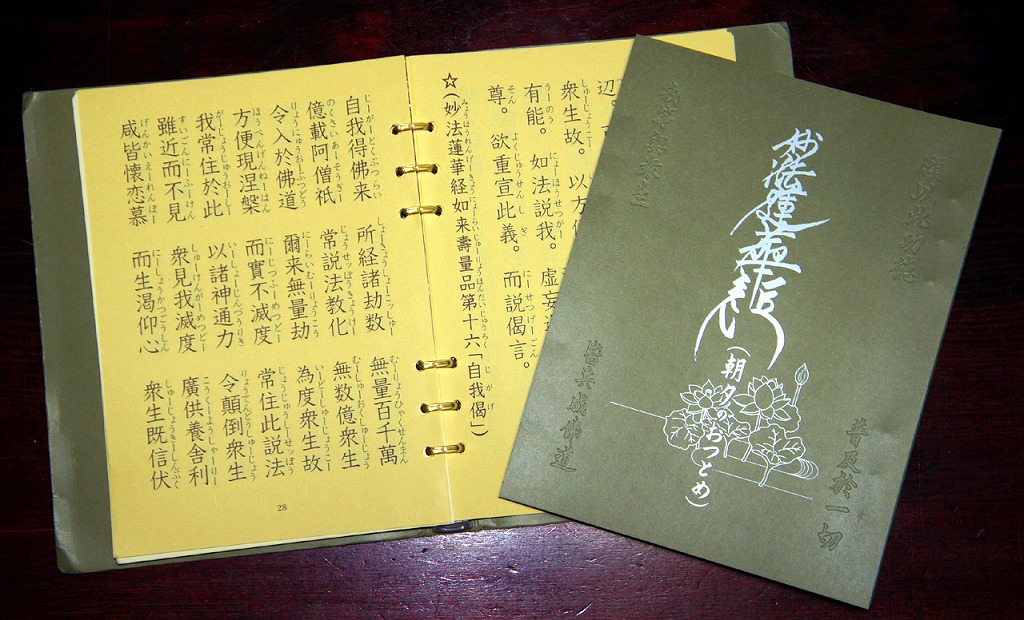 辺。
衆生故。 以方
有能。 如法説我。 虚妄
尊。 欲重宣此義。 而説偈言。
☆(妙法蓮華経如来壽量品第十六「自我偈」)
自我得佛来 所経諸劫数 無量百千萬
億載阿僧祇 常説法教化 無数億衆生
令入於佛道 爾来無量劫 為度衆生故
方便現涅槃 而實不滅度 常住此説法
我常住於此 以諸神通力 令顛倒衆生
雖近而不見 衆見我滅度 廣供養舎利
咸皆懐恋慕 而生渇仰心 衆生既信伏
28
願以此功徳
普及於一切
妙法蓮華経
(朝夕のおつとめ)
我等與衆生
皆共成佛道